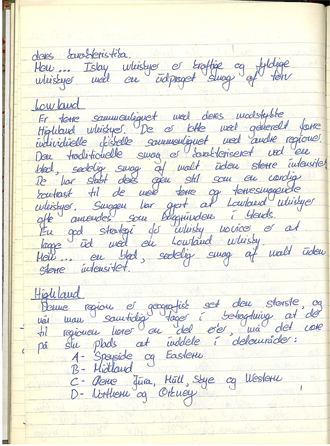 deres karakteristika.
Men... Islay whiskyer er kraftige og fyldige
whiskyer med en udpræget smag af tørv
Lowland
Er tørre sammenlignet med deres modstykke
Highland whiskyer. De er lette med generelt færre
individuelle forskelle sammenlignet med andre regioner.
Den traditionelle smag er karakteriseret ved en
blød, sødelig smag af malt uden større intensitet.
De har stået deres egen stil som en værdig
kontrast til de mere tørre og tørresmagende
whiskyer. Smagen har gjort at Lowland whiskyer
ofte anvendes som baggrunden i blends.
En god strategi for whisky novicer er at
lægge ud med en Lowland whisky.
Men... en blød, sødelig smag af malt uden
større intensitet.
Highland
Denne region er geografisk set den største, og
når man samtidig tager i betragtning at der
til regionen hører en del øer, må det være
på sin plads at inddele i delområder:
A- Speyside og Eastern
B- Midland
C- Øerne Jura, Mull, Skye og Western
D- Northern og Orkney